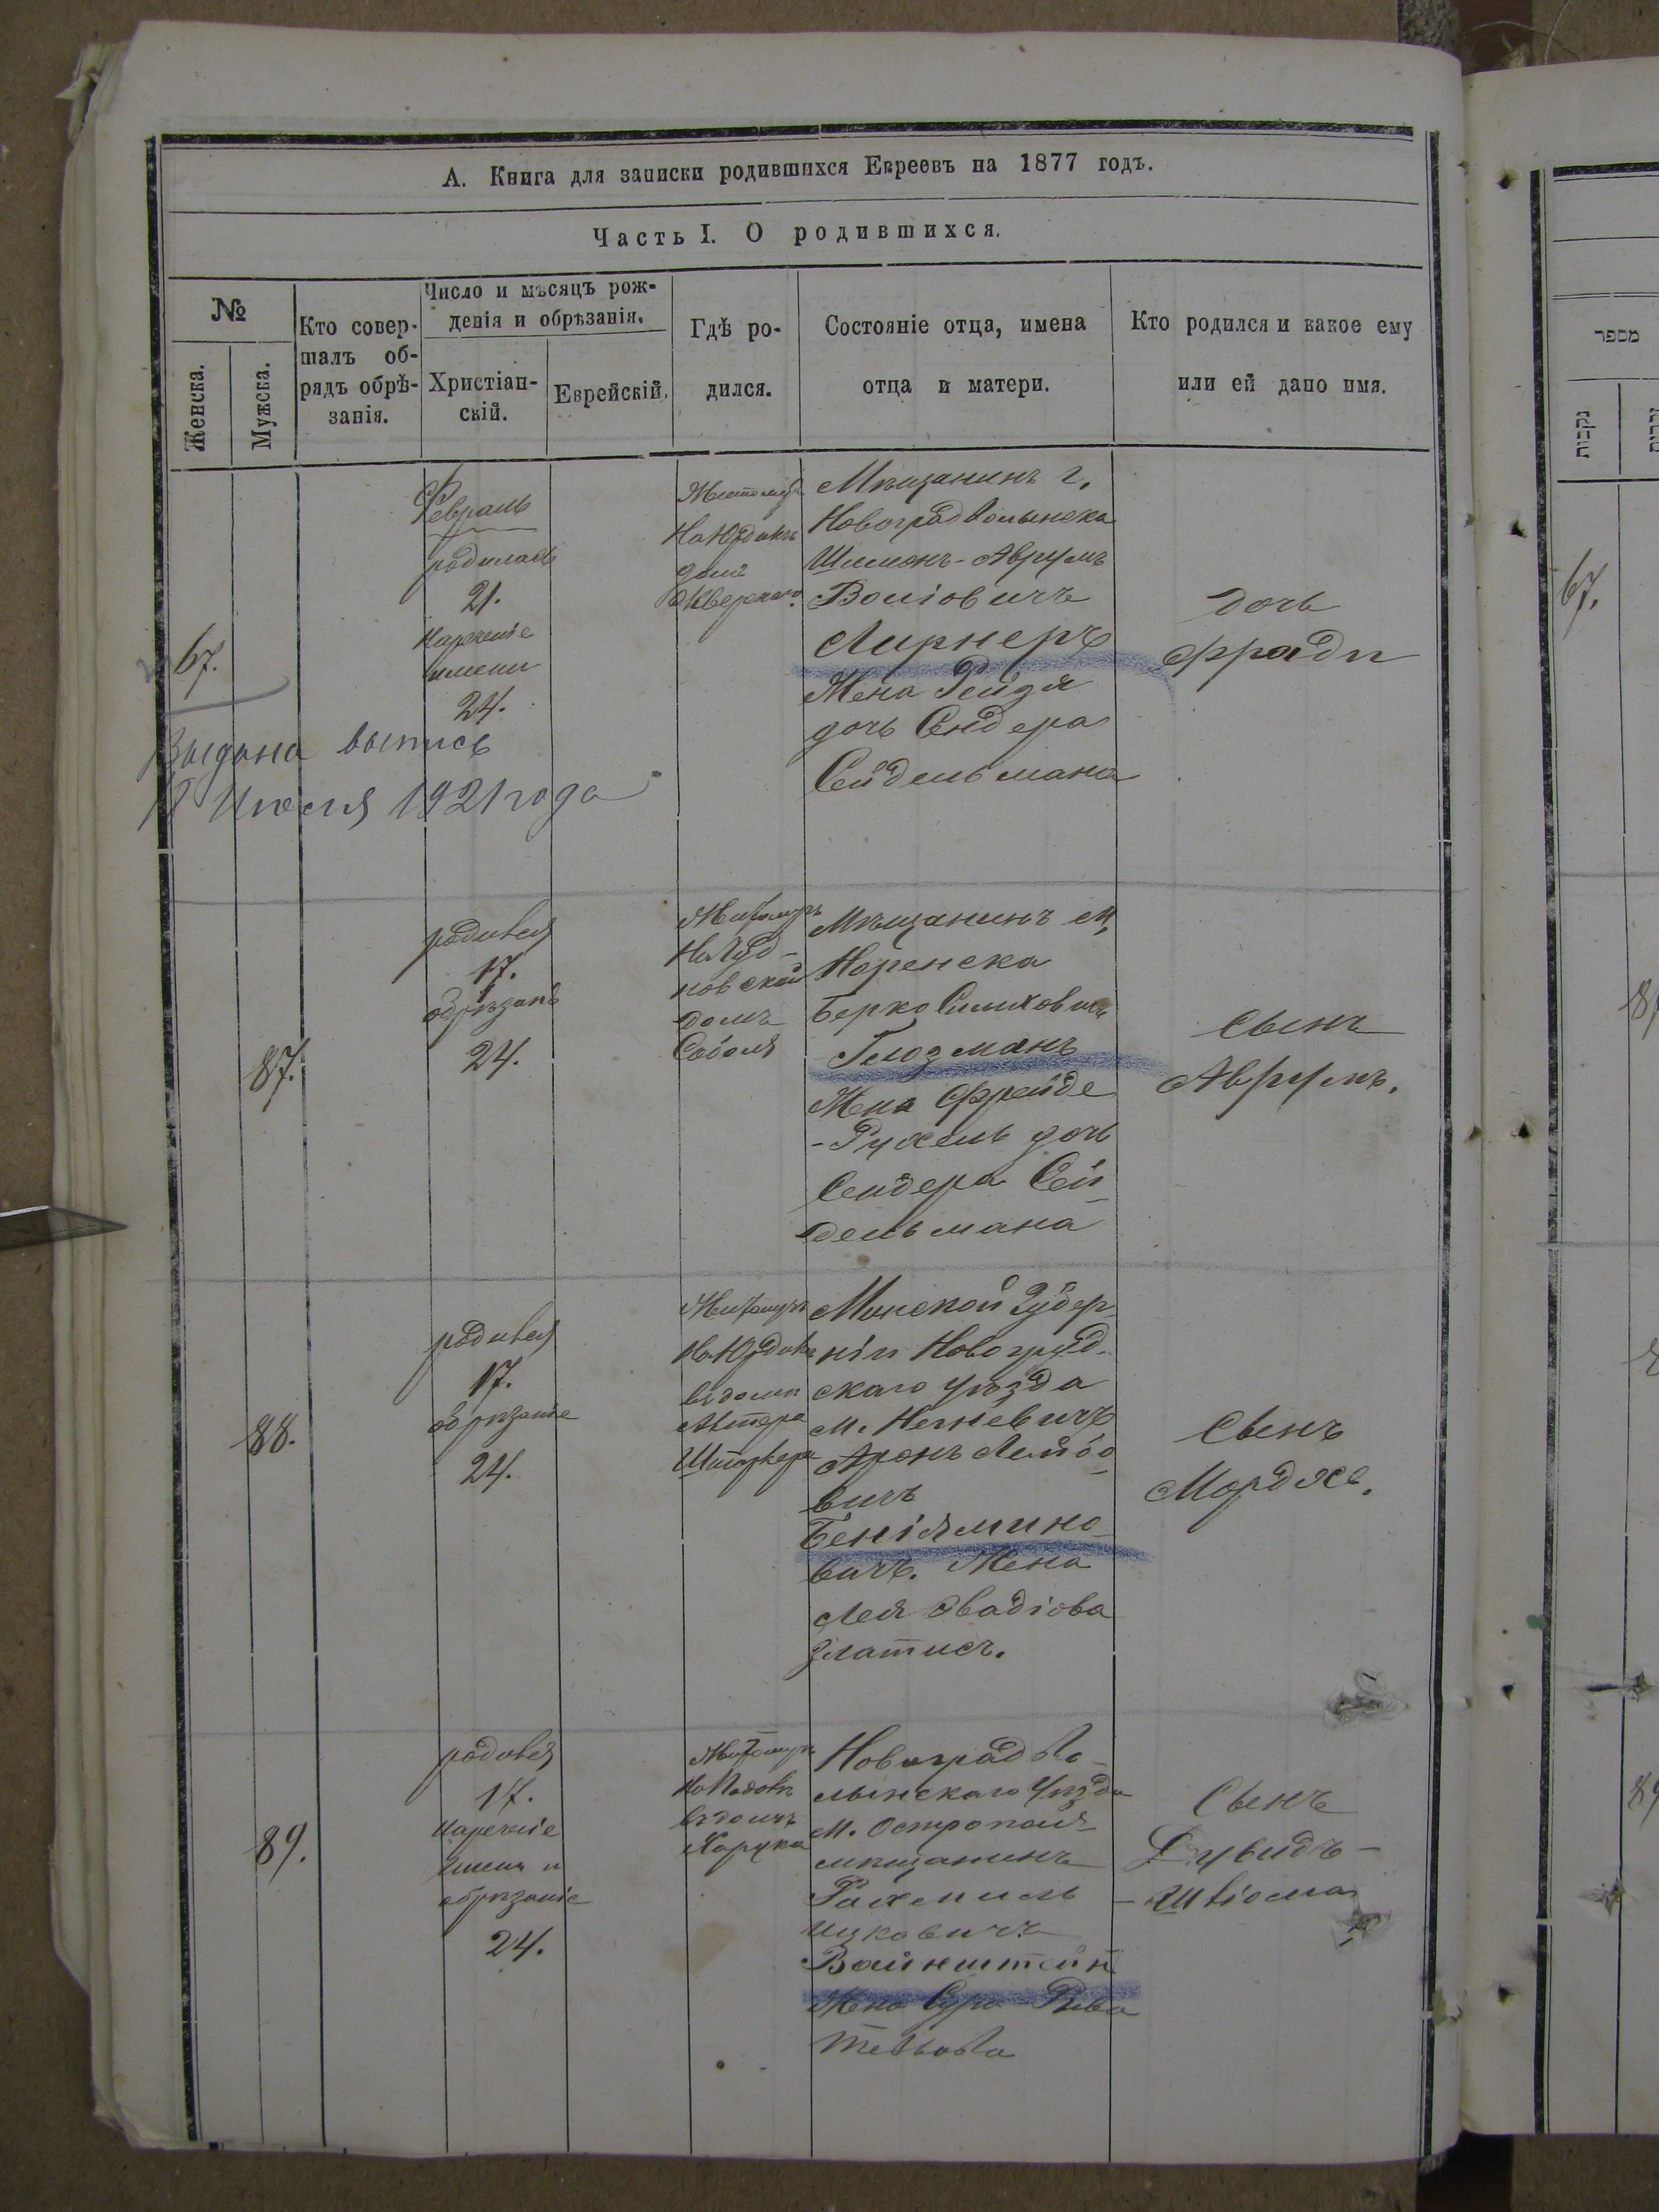 А. Книга для записки родившихся Евреевъ на 1877 годъ.
Часть I. О родившихся.
№
Женска.
Мужска.
Кто совер-
шалъ об-
рядъ обрѣ-
занія.
Число и мѣсяцъ рож-
денія и обрѣзанія.
Христіан-
скій.
Еврейскій.
Гдѣ ро-
дился.
Состояніе отца, имена
отца и матери.
Кто родился и какое ему
или ей дано имя.
67.
Февраль
родилась
21.
Нареченіе
имени
24.
Житомиръ
домъ
Сквернаго
Мѣщанинъ г.
Новоградволынска
Шимонъ-Аврумъ
Волiовичъ
Лирнеръ
Жена Рейзя
дочь Сендера
Сейдельмана
дочь
Фрадя
Выдана выпись
Июля 1921 года
87.
родився
17.
обрѣзанъ
24.
Житомиръ
На Чуд-
новской
домъ
Соболя
Мѣщанинъ М.
Норенска
Берко
Глюзманъ
Жена Фрейде
-Рухель дочь
Сендера Сей-
дельмана
Сынъ
Аврумъ.
88.
родився
17.
обрѣзаніе
24.
Житомиръ
въ домѣ
Минской Губер
ніи Новогруд-
скаго Уѣзда
м. Негневичъ
Аронъ Лейбо-
вичъ
Беніямино-
вичъ. Жена
Лея Овадіова
Златись.
Сынъ
Мордхе.
89.
родовся
17.
Нареченіе
имени и
обрѣзаніе
24.
Житомиръ
въ домѣ
Новоград Во-
лынскаго Уѣзда
м. Острополя
мѣщанинъ
Рахмиль
Ицковичъ
Вайнштейн
Жена Сура-Рива
Сынъ
Дувидъ-
-Шлiома
מספר
נקבות
67.